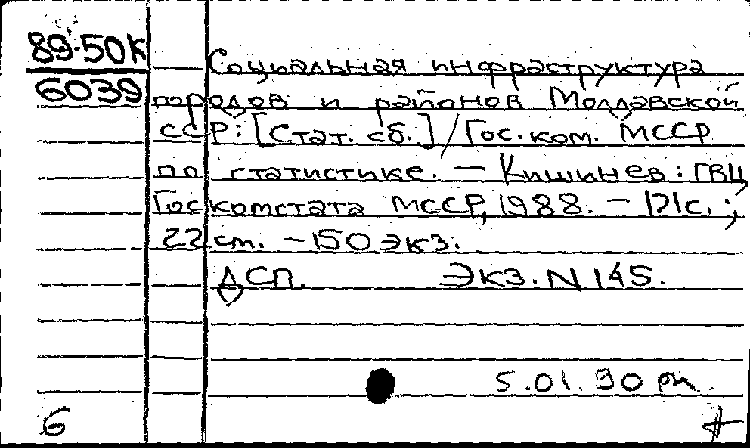 89-50к
6039
Социальная инфраструктура
городов и районов Молдавской
ССР: [Стат. сб.] / Гос. ком. МССР
по статистике. — Кишинев: ГВЦ
Госкомстата МССР, 1988. - 171с.;
22 см. - 150 экз.
ДСП. Экз. N 145.
5.01.90
б